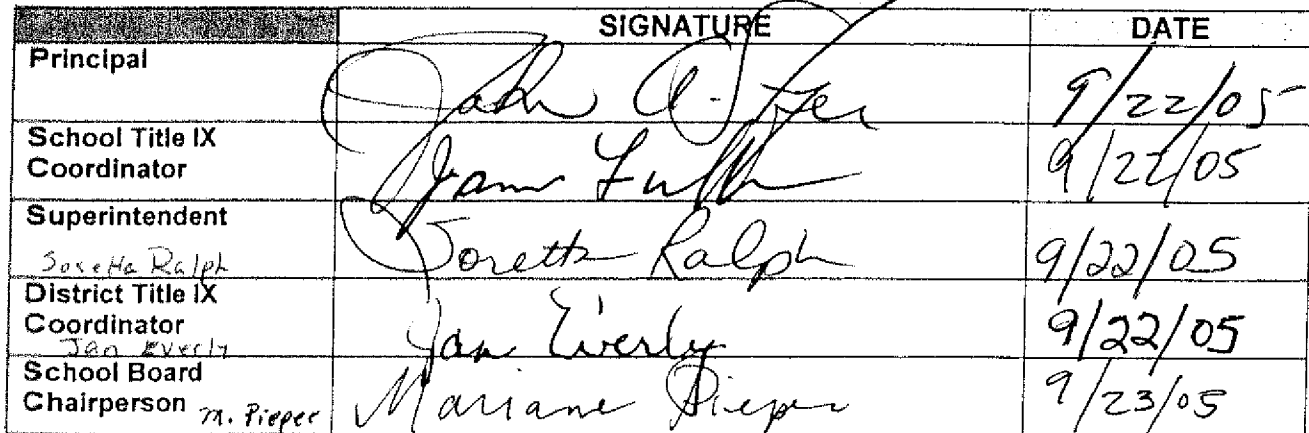 SIGNATURE DATE
Principal John A. 9/22/05
School Title IX
Coordinator 9/22/05
Superintendent
Soretta Ralph Soretta Ralph 9/22/05
District Title IX
Coordinator
Jan Everly Jan Everly 9/22/05
School Board
Chairperson M. Pieper Mariane Pieper 9/23/05